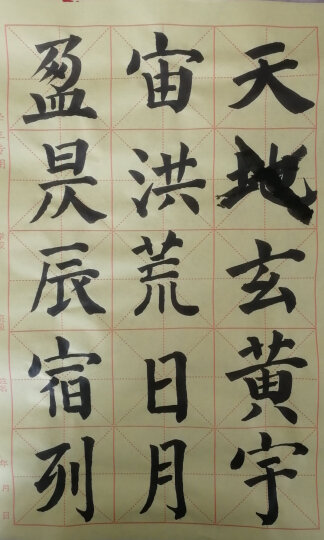 天地玄黄宇
宙洪荒日月
盈昃辰宿列
年月日